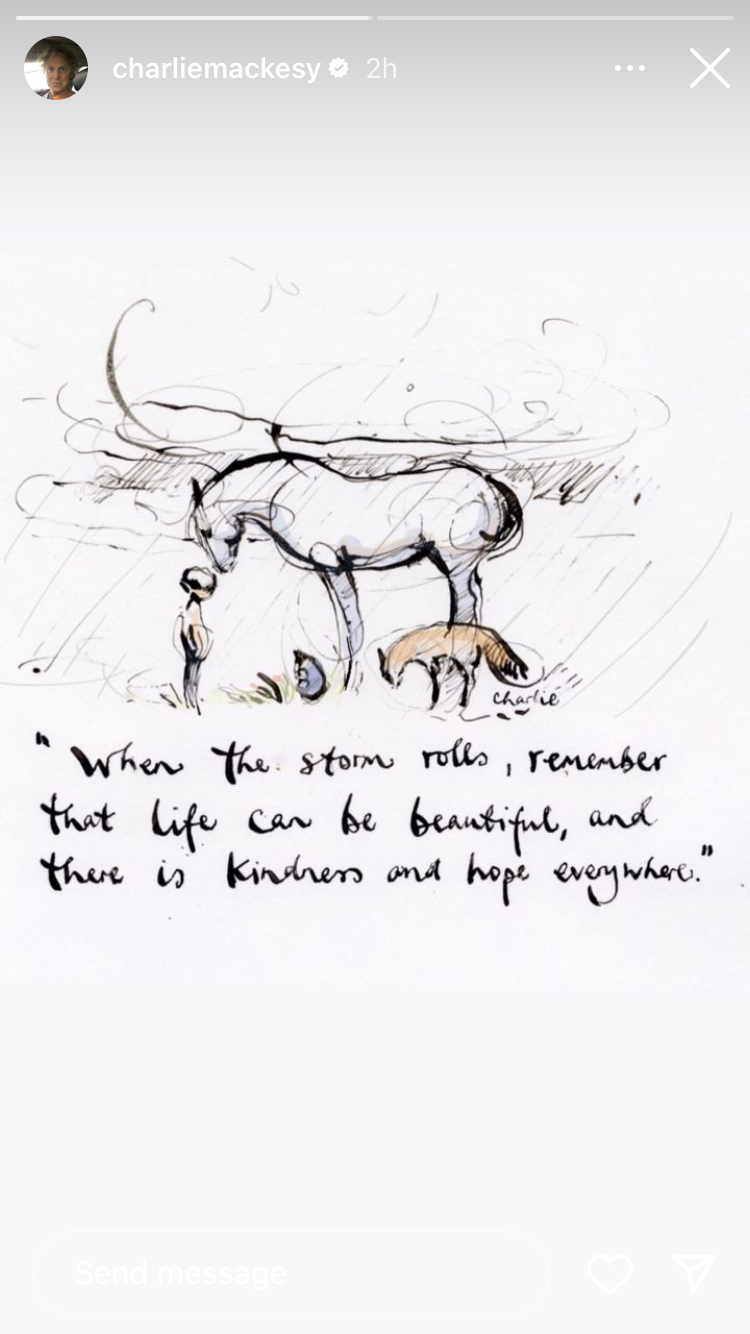 charliemackesy 2h
Charlie
"When the storm rolls, remember
that life can be beautiful, and
there is kindness and hope everywhere."
Send message